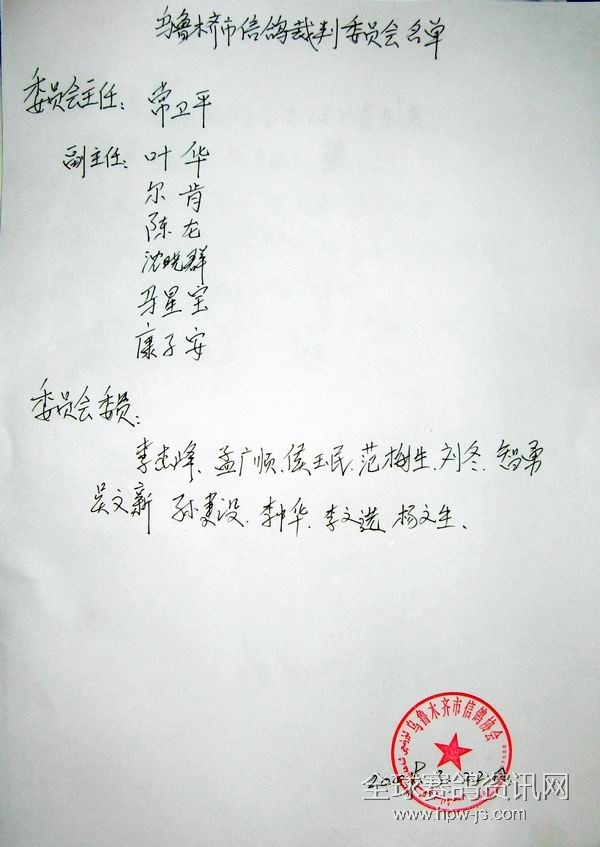 乌鲁木齐市信鸽裁判委员会名单
委员会主任：常卫平
副主任：叶华
尔肯
陈龙
沈晓群
马星宝
康子安
委员会委员：
李志峰、孟广顺、侯玉民、范梅生、刘冬、智勇
吴文新 孙建设、李中华、李文选 杨文生、
乌鲁木齐市信鸽协会
全球赛鸽资讯网
www.hpw-js.com